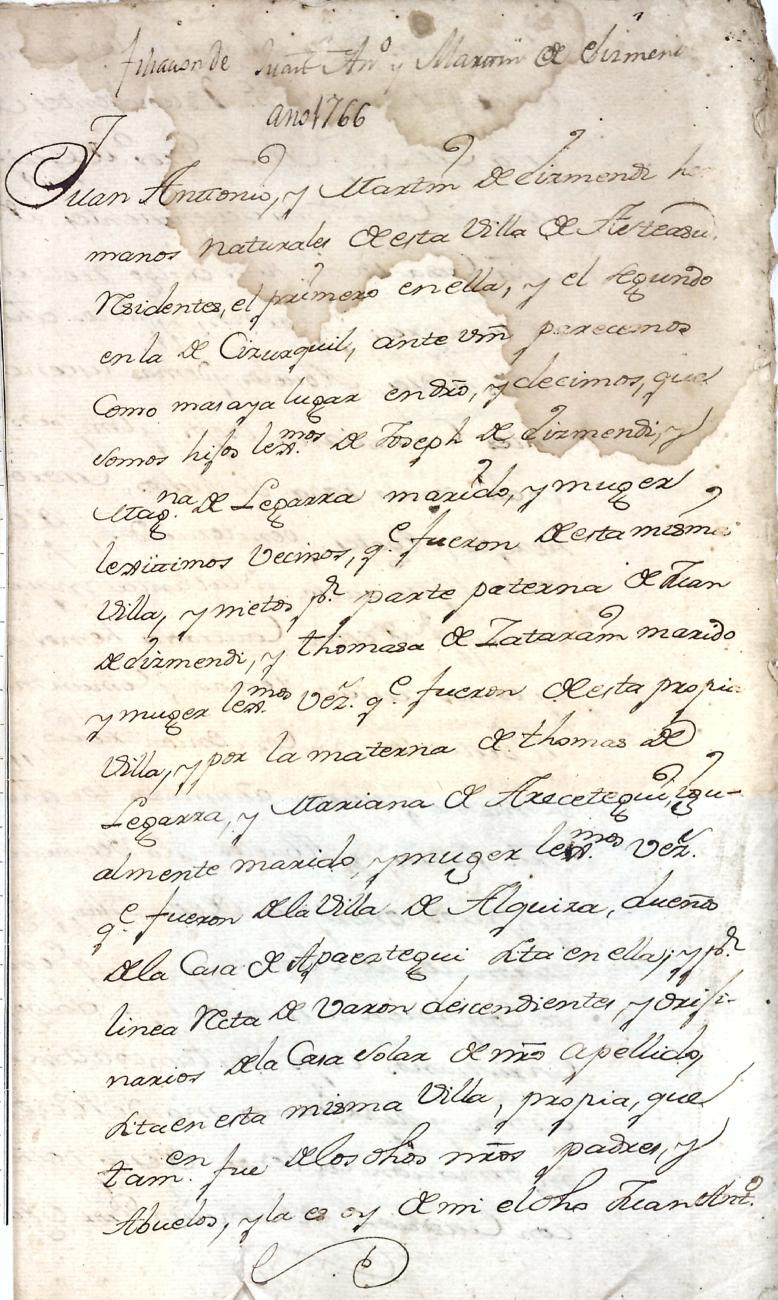 filiacion de Juan Anº y Martin de Lizmendi
año 1766
Juan Anttonio, y Martin de Lizmendi her
manos naturales de esta Villa de Asteasu.
Residentes, el primero en ella, y el segundo
en la de Cizurquil, ante Vm parecemos
Como mas aya lugar en dro, y decimos, que
somos hijos lexmos. de Joseph de Lizmendi, y
Magna. de Legarra marido, y muger
lexitimos vecinos, qe fueron de esta misma
Villa, y nietos pr parte paterna de Juan
de Lizmendi, y thomasa de Zatarain marido
y muger lexmos. vez. qe fueron de esta propia
Villa, y por la materna de thomas de
Legarra, y Mariana de Arecetegui, igu-
almente marido, y muger lexmos. vez.
qe fueron de la Villa de Alquiza, dueños
de la Casa de Apaeztegui sita en ella; y pr
linea recta de Varon descendientes, y oriji-
narios de la Casa solar de nro apellido,
sita en esta misma Villa, propia, que
tamen. fue de los dhos nros padres, y
Abuelos, y la es oy de mi el dho Juan Antº.